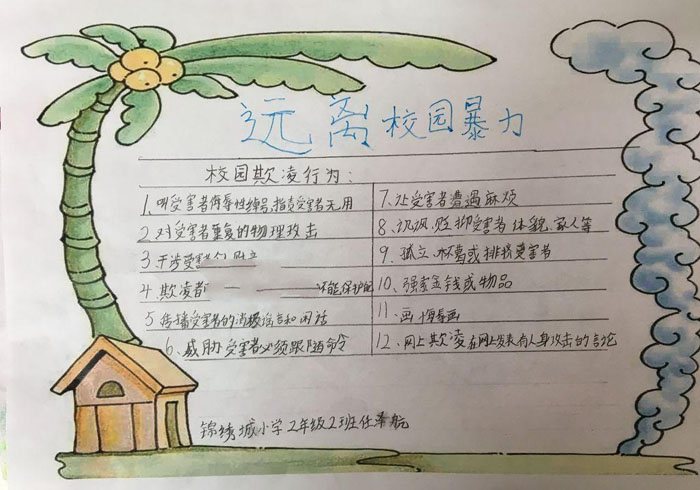 远离校园暴力
校园欺凌行为:
1.叫受害者侮辱性绰号,指责受害者无用
2.对受害者重复的物理攻击
3.干涉受害
4.欺凌者 不能保护
5.传播受害者的消极谣言和闲话
6、威胁受害者必须跟随命令
7.让受害者遭遇麻烦
8、讥讽、贬抑受害者体貌、家人等
9、孤立、杯葛或排挤受害者
10、强索金钱或物品
11、画侮辱画
12、网上欺凌在网上发表有人身攻击的言论
锦绣城小学2年级2班任泽航